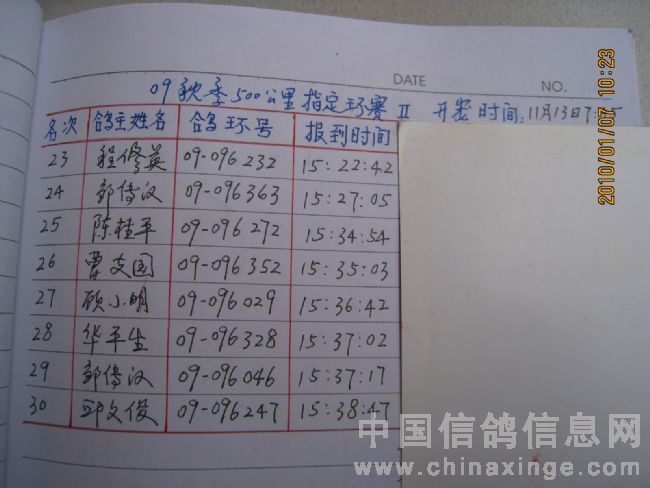 DATE
NO.
09秋季500公里指定环赛Ⅱ 开笼时间:11月13日7:
名次 鸽主姓名 鸽环号 报到时间
23 程修英 09-096232 15:22:42
24 郭传汉 09-096363 15:27:05
25 陈桂平 09-096272 15:34:54
26 曹友国 09-096352 15:35:03
27 顾小明 09-096029 15:36:42
28 华平生 09-096328 15:37:02
29 郭传汉 09-096046 15:37:17
30 邱文俊 09-096247 15:38:47
2010/01/07 10:23
中国信鸽信息网
www.chinaxinge.com